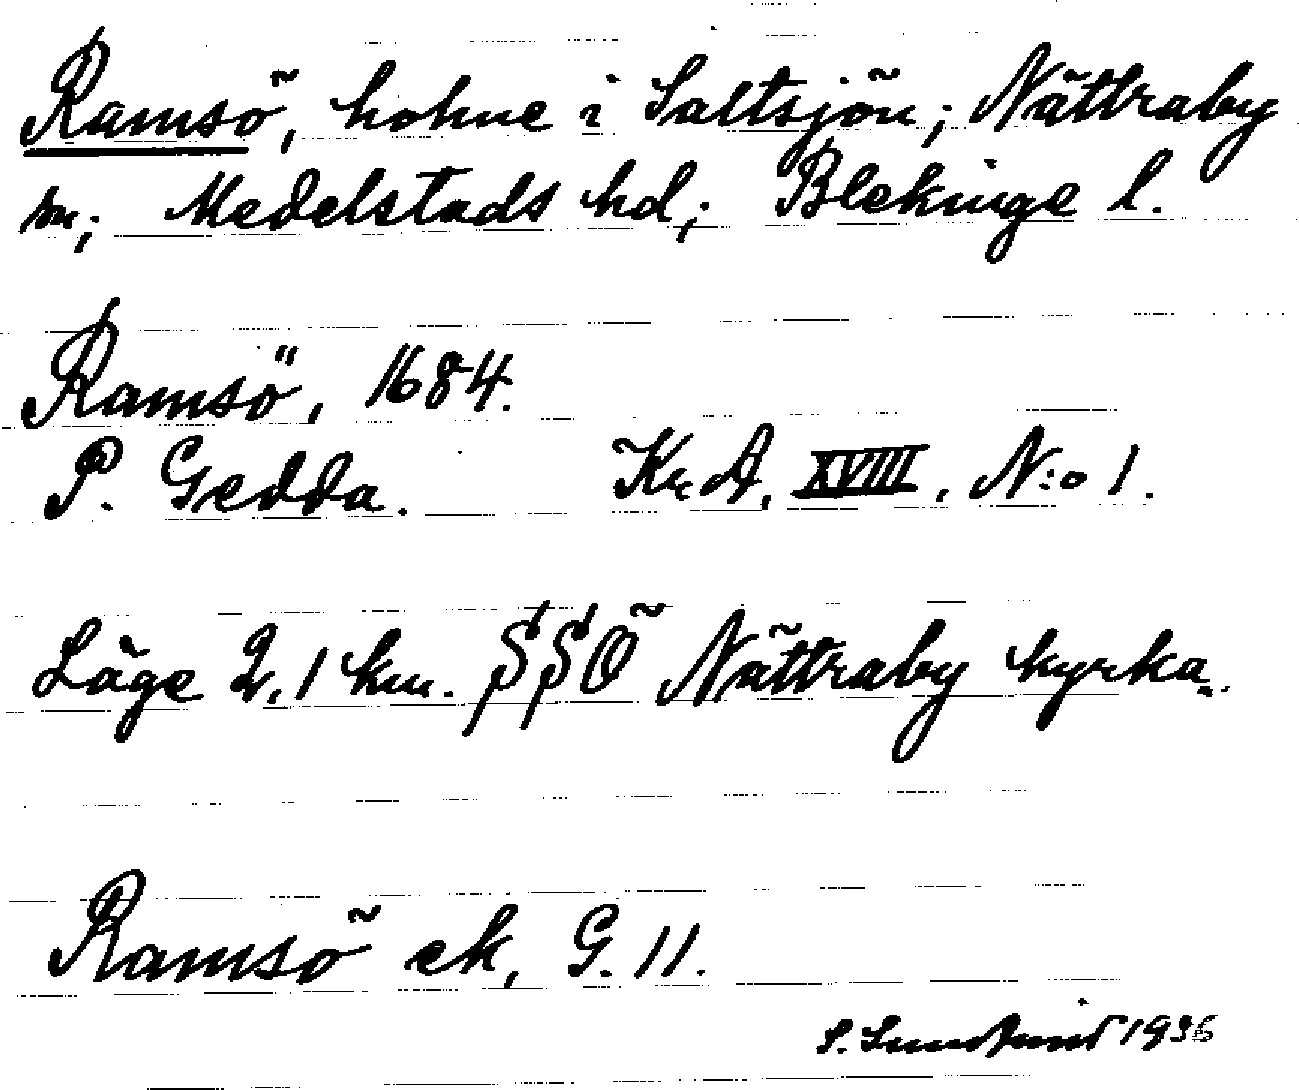 Ramsö, hohne i Saltsjön; Nättraby
sn; Medelstads hd; Blekinge l.
Ramsö, 1684.
P. Gedda. Kr. A, XVIII, N:o 1.
Läge 2,1 km. SSÖ Nättraby kyrka.
Ramsö ek, G. 11.
S. 1936